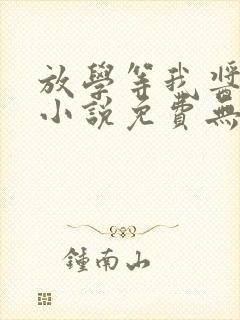 放學等我醬
小說免費無
鍾南山